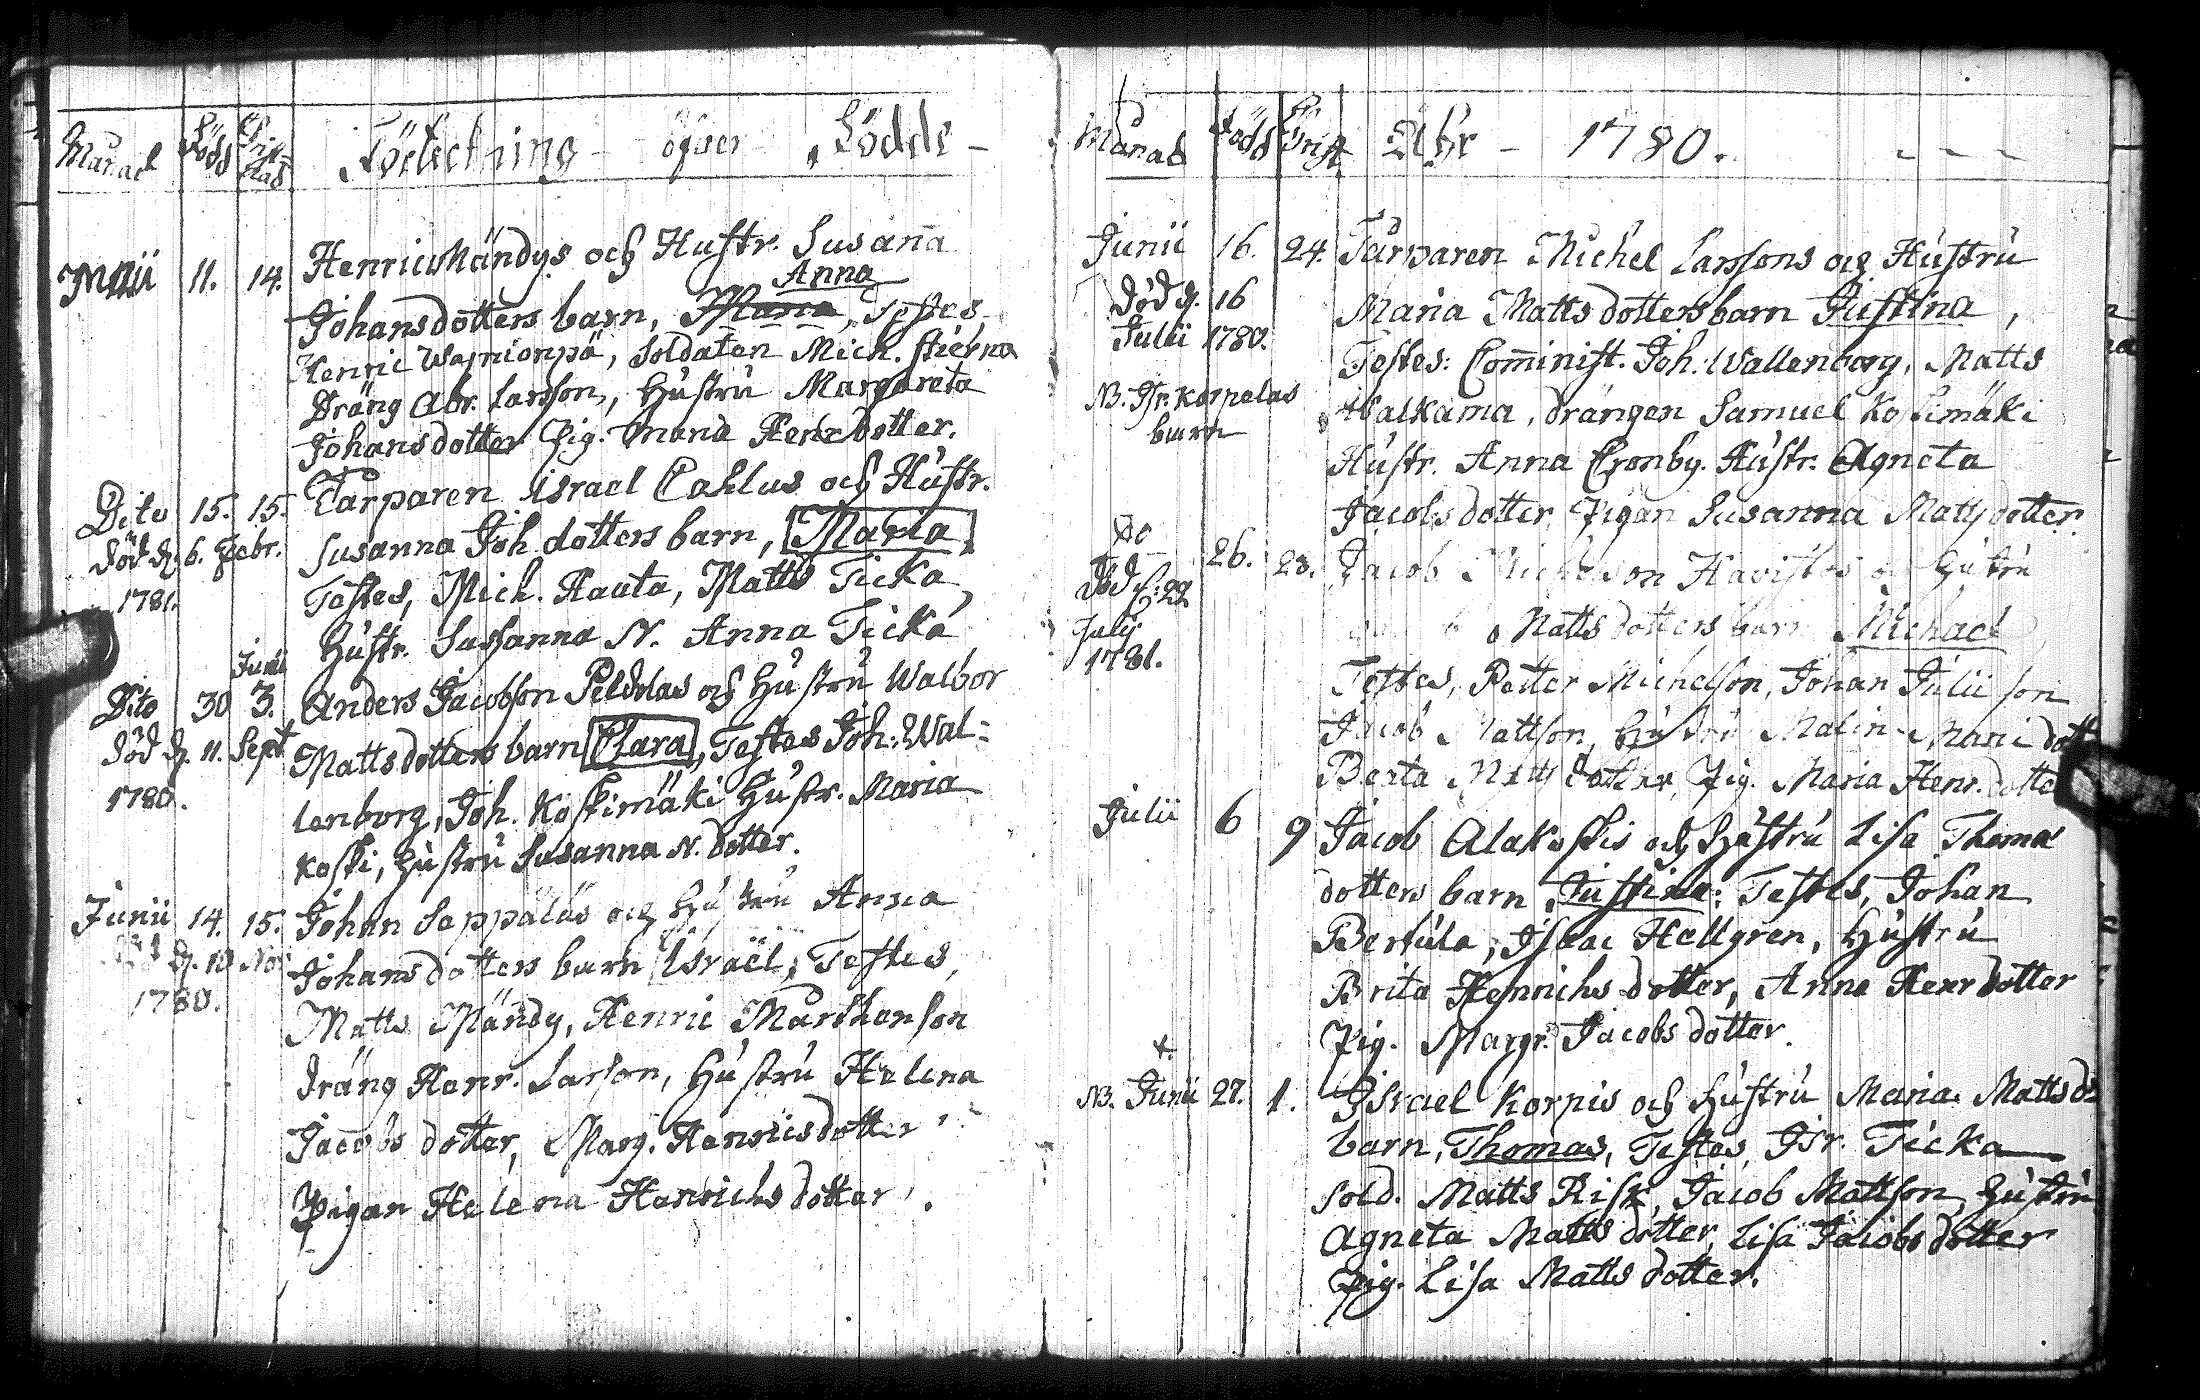 Månad Född Christnad Förteckning öfver Födde
Maii 11. 14. Henric Mändys och Hustr. Susanna
Anna
Johansdotters barn, Maria, Testes
Henric Wapnionpä, Soldaten Mich. Stierna
Dräng Abr. Larsson, Hustru Margareta
Johansdotter Pig. Maria Henr dotter.
Dito 15. 15. Torparen Israel Cahlus och Hustr.
död d. 6. Febr. Susanna Joh dotters barn, Maria,
1781. Testes, Mich. Rauta, Matts Ticka,
Hustr. Susanna N. Anna Ticka
Junii
Dito 30 3. Anders Jacobson Peldolas och Hustru Walbor
död d. 11. Sept Mattsdotters barn Clara, Testes Joh. Wal-
1780. lenborg, Joh. Koskimäki Hustr. Maria
Koski, Hustru Susanna N. dotter.
Junii 14. 15. Johan Seppäläs och Hustru Anna
död d. 18 Nov. Johansdotters barn Israël, Testes,
1780. Matts Mändy, Henric Mårthenson
dräng Henr. Larson, Hustru Helena
Jacobs dotter, Marg. Henricsdotter
Pigan Helena Henrichs dotter.
Månad Född Christ. Åhr - 1780.
Junii 16. 24. Torparen Michel Larssons och Hustru
död d. 16 Maria Matts dotters barn Justina,
Julii 1780. Testes: Comminist. Joh. Wallenborg, Matts
NB. Isr. Korpelas Walkama, drängen Samuel Koskimäki
barn Hustr. Anna Cronby. Hustr. Agneta
Jacobs dotter Pigan Susanna Matts dotter
Do 26. 28. Jacob Michelson Havistos och Hustru
död d. 22 Matts dotters barn Michael
July Testes, Petter Michelson, Johan Julii son
1781. Jacob Mattson, Hustru Malin Mari dott
Berta Matts dotter, Pig. Maria Henr. dotte
Julii 6 9 Jacob Alakoskis och Hustru Lisa Thomas
dotters barn Justina: Testes, Johan
Bertula, Isaac Hellgren, Hustru
Brita Henrichs dotter, Anna Henr dotter
Pig. Margr. Jacobs dotter.
+
NB. Junii 27. 1. Israel Korpis och Hustru Maria Matts d
barn, Thomas, Testes, Isr. Ticka
Sold. Matts Risk, Jacob Mattson, Hustru
Agneta Matts dotter, Lisa Jacobs dotter
Pig. Lisa Matts dotter.